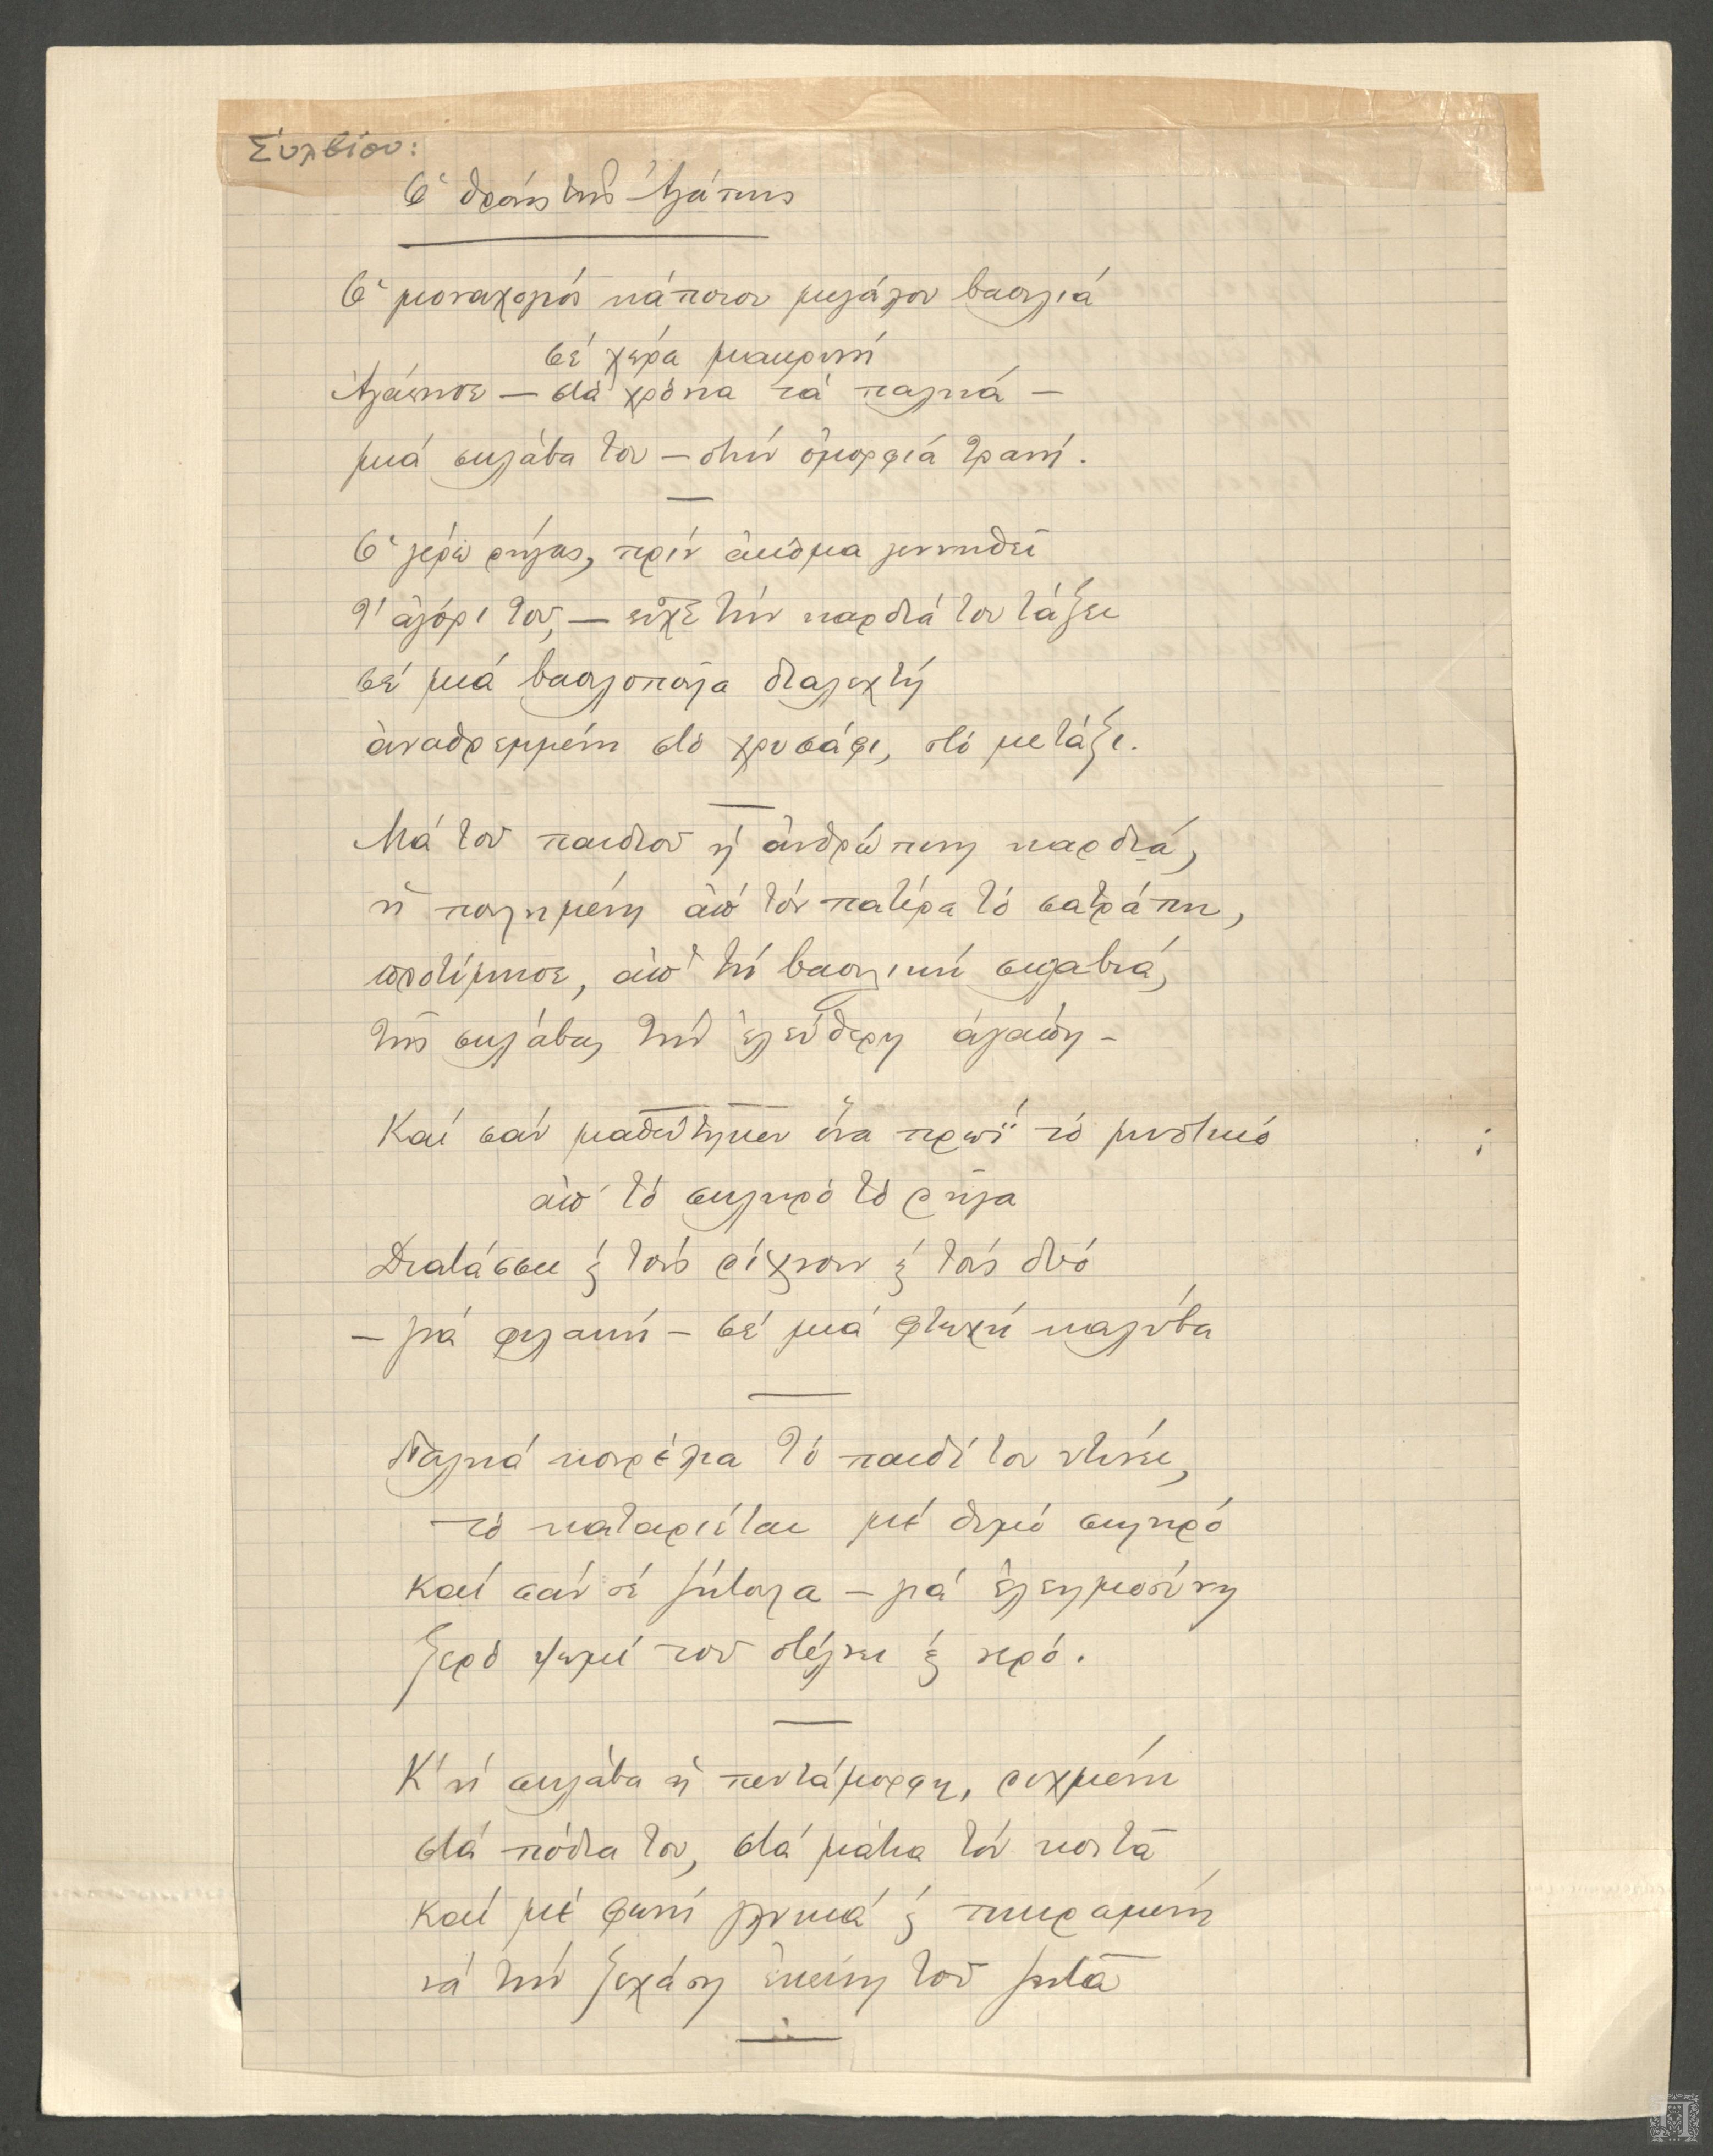 Συλβίου:
Ὁ θρόνος τῆς Ἀγάπης
Ὁ μοναχογιός κάποιου μεγάλου βασιλιά
σέ χώρα μακρυνή
Ἀγάπησε — στά χρόνια τά παληά —
μιά σκλάβα του — στήν ὀμορφιά τρανή.
Ὁ γέρω ρήγας, πρίν ἀκόμα γεννηθεῖ
τ' ἀγόρι του, — εἶχε τήν καρδιά του τάξει
σέ μιά βασιλοπούλα διαλεχτή
ἀναθρεμμένη στό χρυσάφι, στό μετάξι.
Μά τοῦ παιδιοῦ ἡ ἀνθρώπινη καρδιά,
ἡ πουλημένη ἀπό τόν πατέρα τό σατράπη,
προτίμησε, ἀπ' τή βασιλική σκλαβιά,
τῆς σκλάβας τήν ἐλεύθερη ἀγάπη –
Καί σάν μαθεύτηκεν ἕνα πρωΐ τό μυστικό
ἀπ' τό σκληρό τό ρήγα
Διατάσσει ϗ τούς ρίχνουν ϗ τούς δυό
– γιά φυλακή – σέ μιά φτωχή καλύβα
Παληά κουρέλια τό παιδί του ντύνει,
τό καταριέται μέ θυμό σκληρό
Καί σάν σέ ζήτουλα – γιά ἐλεημοσύνη
ξερό ψωμί τοῦ στέλνει ϗ νερό.
Κ' ἡ σκλάβα ἡ πεντάμορφη, ριχμένη
στά πόδια του, στά μάτια τόν κοιτᾶ
καί μέ φωνή γλυκιά ϗ πικραμένη
νά τήν ξεχάση ἐκείνη τοῦ ζητᾶ